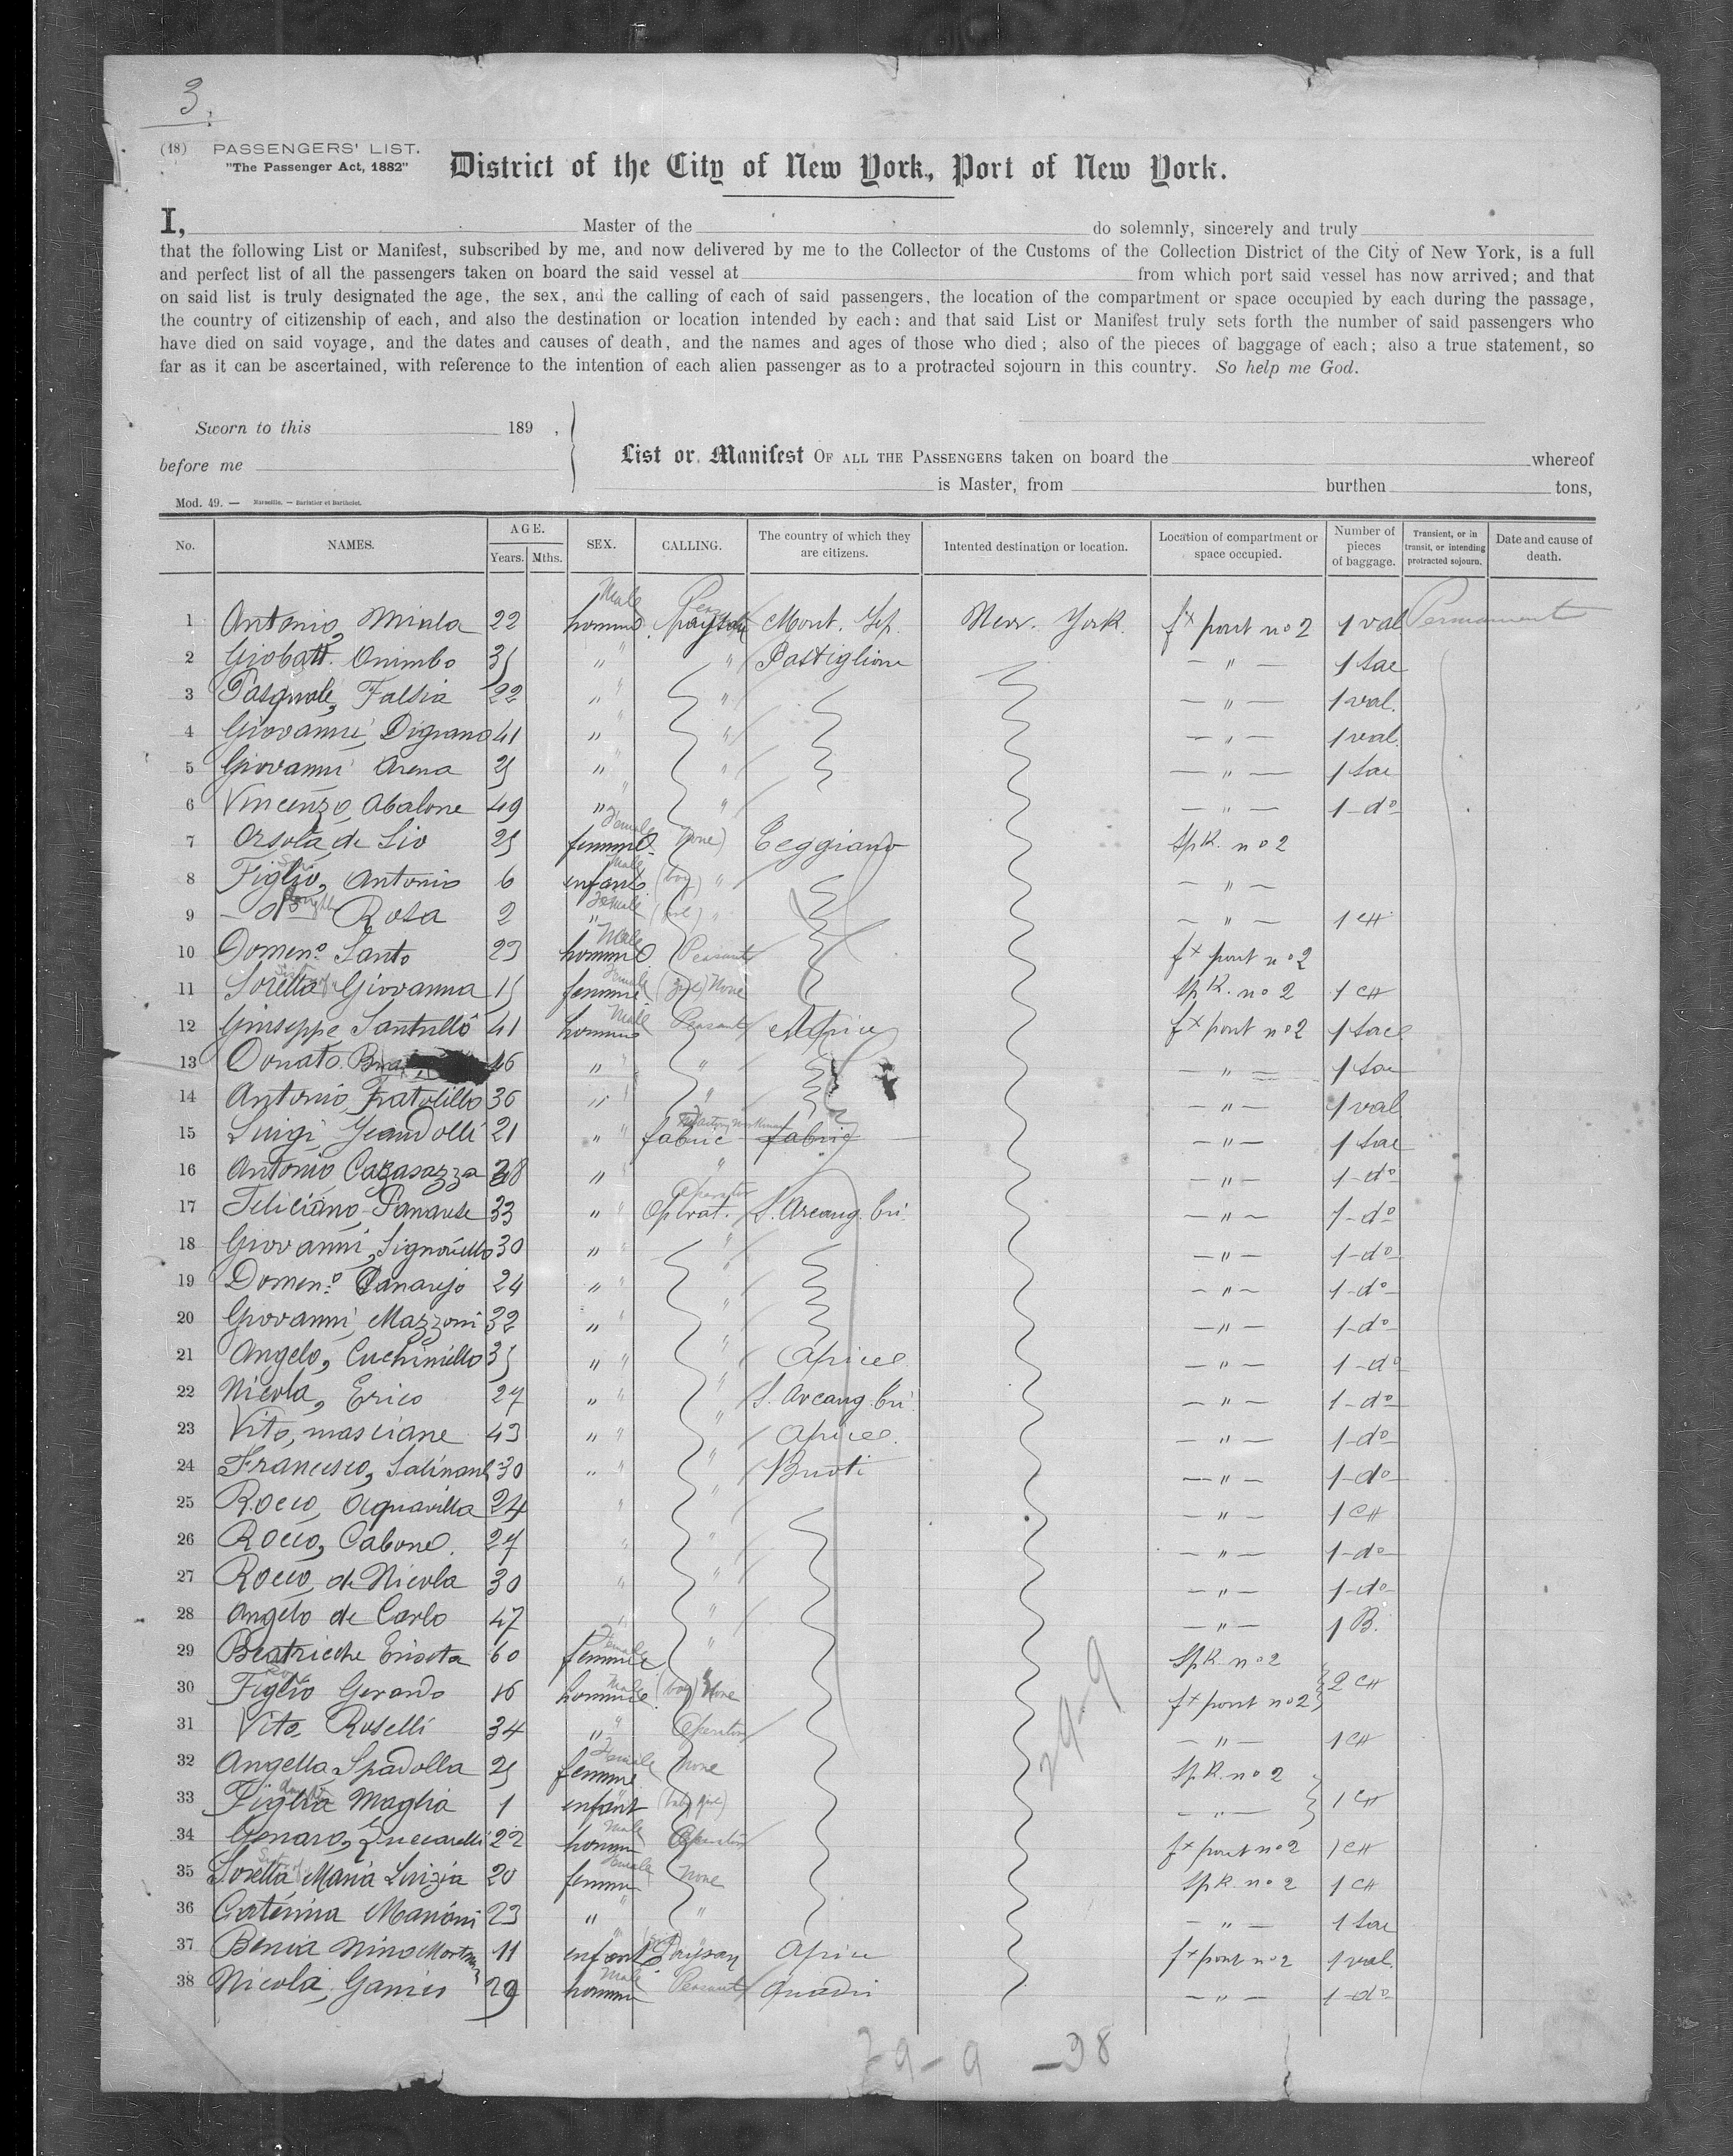 3.
(18) PASSENGERS' LIST.
"The Passenger Act, 1882"
District of the City of New York, Port of New York.
I, Master of the do solemnly, sincerely and truly
that the following List or Manifest, subscribed by me, and now delivered by me to the Collector of the Customs of the Collection District of the City of New York, is a full
and perfect list of all the passengers taken on board the said vessel at from which port said vessel has now arrived; and that
on said list is truly designated the age, the sex, and the calling of each of said passengers, the location of the compartment or space occupied by each during the passage,
the country of citizenship of each, and also the destination or location intended by each: and that said List or Manifest truly sets forth the number of said passengers who
have died on said voyage, and the dates and causes of death, and the names and ages of those who died; also of the pieces of baggage of each; also a true statement, so
far as it can be ascertained, with reference to the intention of each alien passenger as to a protracted sojourn in this country. So help me God.
Sworn to this 189 ,
before me
List or Manifest OF ALL THE PASSENGERS taken on board the whereof
is Master, from burthen tons,
Mod. 49. — Marseille. — Barlatier et Barthelet.
No. NAMES. AGE. Years. Mths. SEX. CALLING. The country of which they are citizens. Intented destination or location. Location of compartment or space occupied. Number of pieces of baggage. Transient, or in transit, or intending protracted sojourn. Date and cause of death.
1 Antonio, Miala 22 homme Male Mont. New. York. fx pont no 2 1 val Permanent
2 Giobatt. Onimbo 35 " " Castiglione — " — 1 sac
3 Pasquale, Falsia 22 " " — " — 1 val.
4 Giovanni, Digiano 41 " " — " — 1 val.
5 Giovanni Arena 25 " " — " — 1 sac
6 Vincenzo, Abalone 49 " " — " — 1 - do
7 Orsola de Lio 25 femme Female (None) Teggiano spk. no 2
8 Figlio, Antonio 6 enfant Male (boy) " — " —
9 — do Rosa 2 " Female (girl) " — " — 1 cH
10 Domeno Santo 23 homme Male Peasant fx pont no 2
11 Sorella Giovanna 15 femme Female (girl) None spk. no 2 1 cH
12 Giuseppe Santullo 41 homme Male Peasant fx pont no 2 1 sac
13 Donato 46 " " — " — 1 sac
14 Antonio, Fratolillo 36 " " — " — 1 val
15 Luigi 21 " fabric fabric — " — 1 sac
16 Antonio Casasazza 28 " " — " — 1 - do
17 Feliciano Panarese 33 " Operat. Operator S. Arcang. — " — 1 - do
18 Giovanni, Signoriello 30 " " — " — 1 - do
19 Domeno 24 " " — " — 1 - do
20 Giovanni, Mazzoni 32 " " — " — 1 - do
21 Angelo, Cuchiniello 35 " " — " — 1 - do
22 Nicola, Erico 27 " " S. Arcang. — " — 1 - do
23 Vito, masciane 43 " " — " — 1 - do
24 Francesco, 30 " " — " — 1 - do
25 Rocco, Acquavilla 24 " " — " — 1 cH
26 Rocco, Cabone. 27 " " — " — 1 - do
27 Rocco, de Nicola 30 " " — " — 1 - do
28 Angelo de Carlo 47 " " — " — 1 B.
29 Beatricche 60 femme Female " spk. no 2
30 Figlio Gerardo 16 homme Male (boy) None fx pont no 2 2 cH
31 Vito, Roselli 34 " " Operator — " — 1 cH
32 Angella Spadolla 25 femme Female None spk. no 2
33 Figlia Maglia 1 enfant (baby girl) — " — 1 cH
34 Genaro, Zuccarelli 22 homme Male Operator fx pont no 2 1 cH
35 Sorella Maria Luizia 20 femme Female None spk. no 2 1 cH
36 Catérina Manoni 23 " " — " — 1 sac
37 11 enfant Paysan fx pont no 2 1 val.
38 Nicola 29 homme Male Peasant — " — 1 - do
29-9
29-9 -38